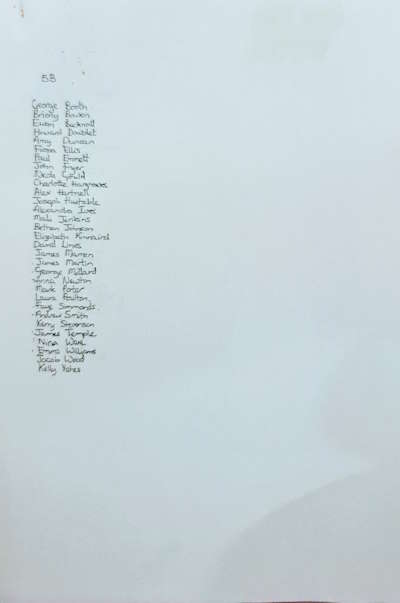 5B
George Booth
Briony Bowen
Ewan Bucknall
Howard Doublet
Amy Duncan
Fiona Ellis
Paul Emmett
John Fryer
Nicola
Charlotte Hargreaves
Alex Hartnell
Joseph Huxtable
Alexandra Ives
Jenkins
Bethan Johnson
Elizabeth Kinnaird
David Lines
James Marren
James Martin
George Millard
Anna Newton
Mark Porter
Laura Poulton
Faye Simmonds
Andrew Smith
Kerry Stevenson
James Temple
Nina Ware
Emma Williams
Jacob Wood
Kelly Yates